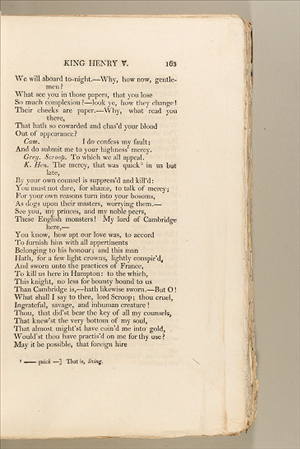 KING HENRY V. 163
We will aboard to-night.—Why, how now, gentle-
men?
What see you in those papers, that you lose
So much complexion?—look ye, how they change!
Their cheeks are paper.—Why, what read you
there,
That hath so cowarded and chas'd your blood
Out of appearance?
Cam. I do confess my fault;
And do submit me to your highness' mercy.
Grey. Scroop. To which we all appeal.
K. Hen. The mercy, that was quick in us but
late,
By your own counsel is suppress'd and kill'd:
You must not dare, for shame, to talk of mercy;
For your own reasons turn into your bosoms,
As dogs upon their masters, worrying them.—
See you, my princes, and my noble peers,
These English monsters! My lord of Cambridge
here,—
You know, how apt our love was, to accord
To furnish him with all appertinents
Belonging to his honour; and this man
Hath, for a few light crowns, lightly conspir'd,
And sworn unto the practices of France,
To kill us here in Hampton: to the which,
This knight, no less for bounty bound to us
Than Cambridge is,—hath likewise sworn.—But O!
What shall I say to thee, lord Scroop; thou cruel,
Ingrateful, savage, and inhuman creature!
Thou, that did'st bear the key of all my counsels,
That knew'st the very bottom of my soul,
That almost might'st have coin'd me into gold,
Would'st thou have practis'd on me for thy use?
May it be possible, that foreign hire
—— quick —] That is, living.